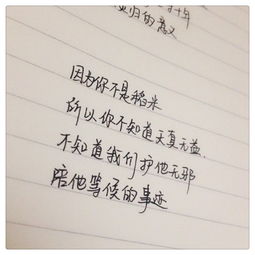 归的意义
因为你不是稻米
所以你不知道天真无益.
不知道我们护他无邪
陪他等候的事迹